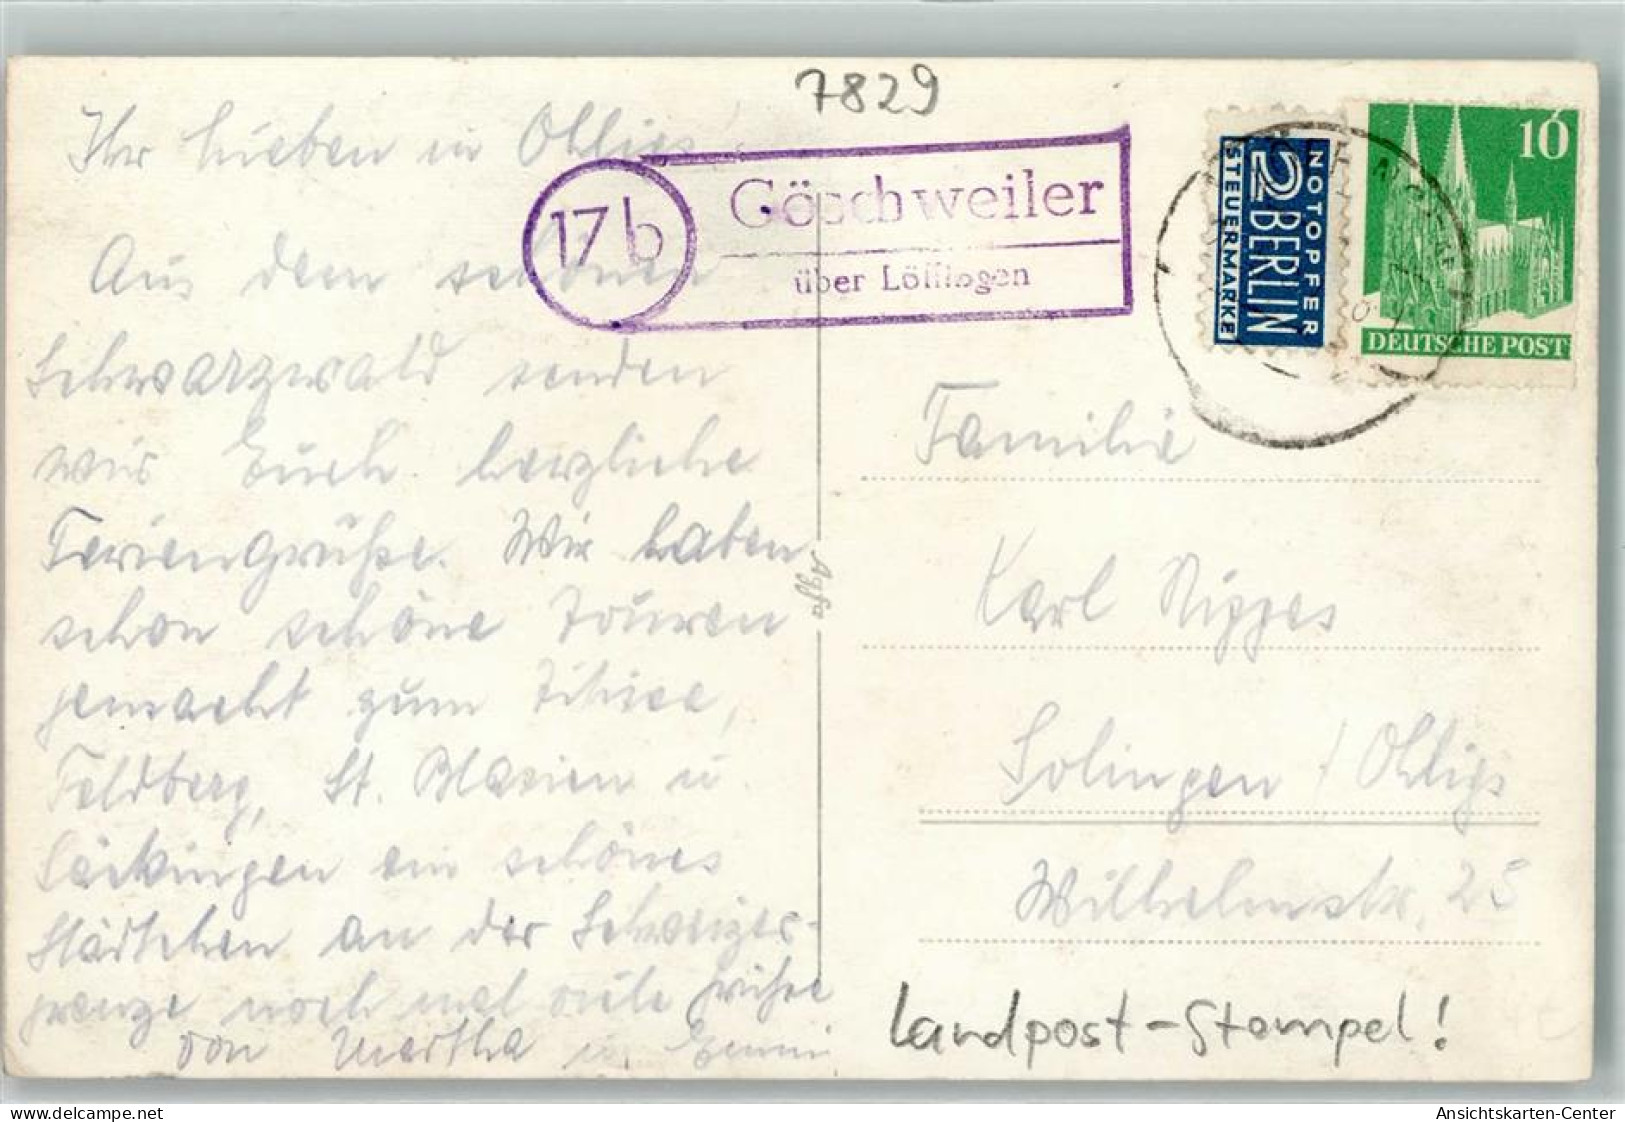 7829
Ihr Lieben in Ohligs!
17b
Göschweiler
über Löffingen
NOTOPFER
2 BERLIN
STEUERMARKE
10
DEUTSCHE POST
Aus dem schönen
Schwarzwald senden
wir Euch herzliche
Feriengrüße. Wir haben
schon schöne Touren
gemacht zum Titisee,
Feldberg, St. Blasien u.
Säckingen ein schönes
Städtchen an der Schweizer-
grenze noch mal viele Grüße
von Martha u. Emmi
Agfa
Familie
Karl Nippes
Solingen / Ohligs
Wilhelmstr. 25
Landpost-Stempel!
Ansichtskarten-Center